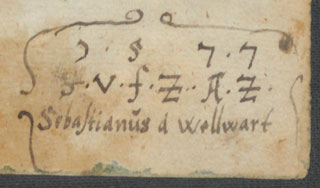 1 · 5 7 · 7
F · V · f · Z · A · Z ·
Sebastianůs a Wellwart